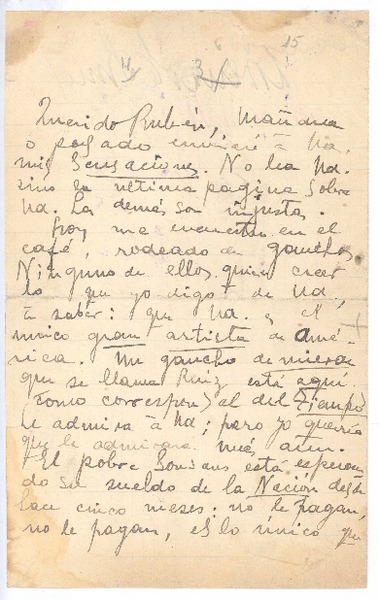 15
4 3
Querido Rubén, Mañana
o pasado enviaré à Vd.
mis Sensaciones. No lea Vd.
sino la última pagina sobre
Vd. Las demás son injustas.
Hoy me encuentro en el
café, rodeado de gauchos
Ninguno de ellos quiere creer
lo que yo digo de Vd,
à saber: que Vd. es el
único gran artista de Amé-
rica. Un gaucho de
que se llama Ruiz está aquí
(como corresponsal del Tiempo)
le admira à Vd; pero yo querría
que le admirara más aun.
El pobre está esperan
do su sueldo de la Nación desde
hace cinco meses: no le pagan,
no le pagan, es lo único que